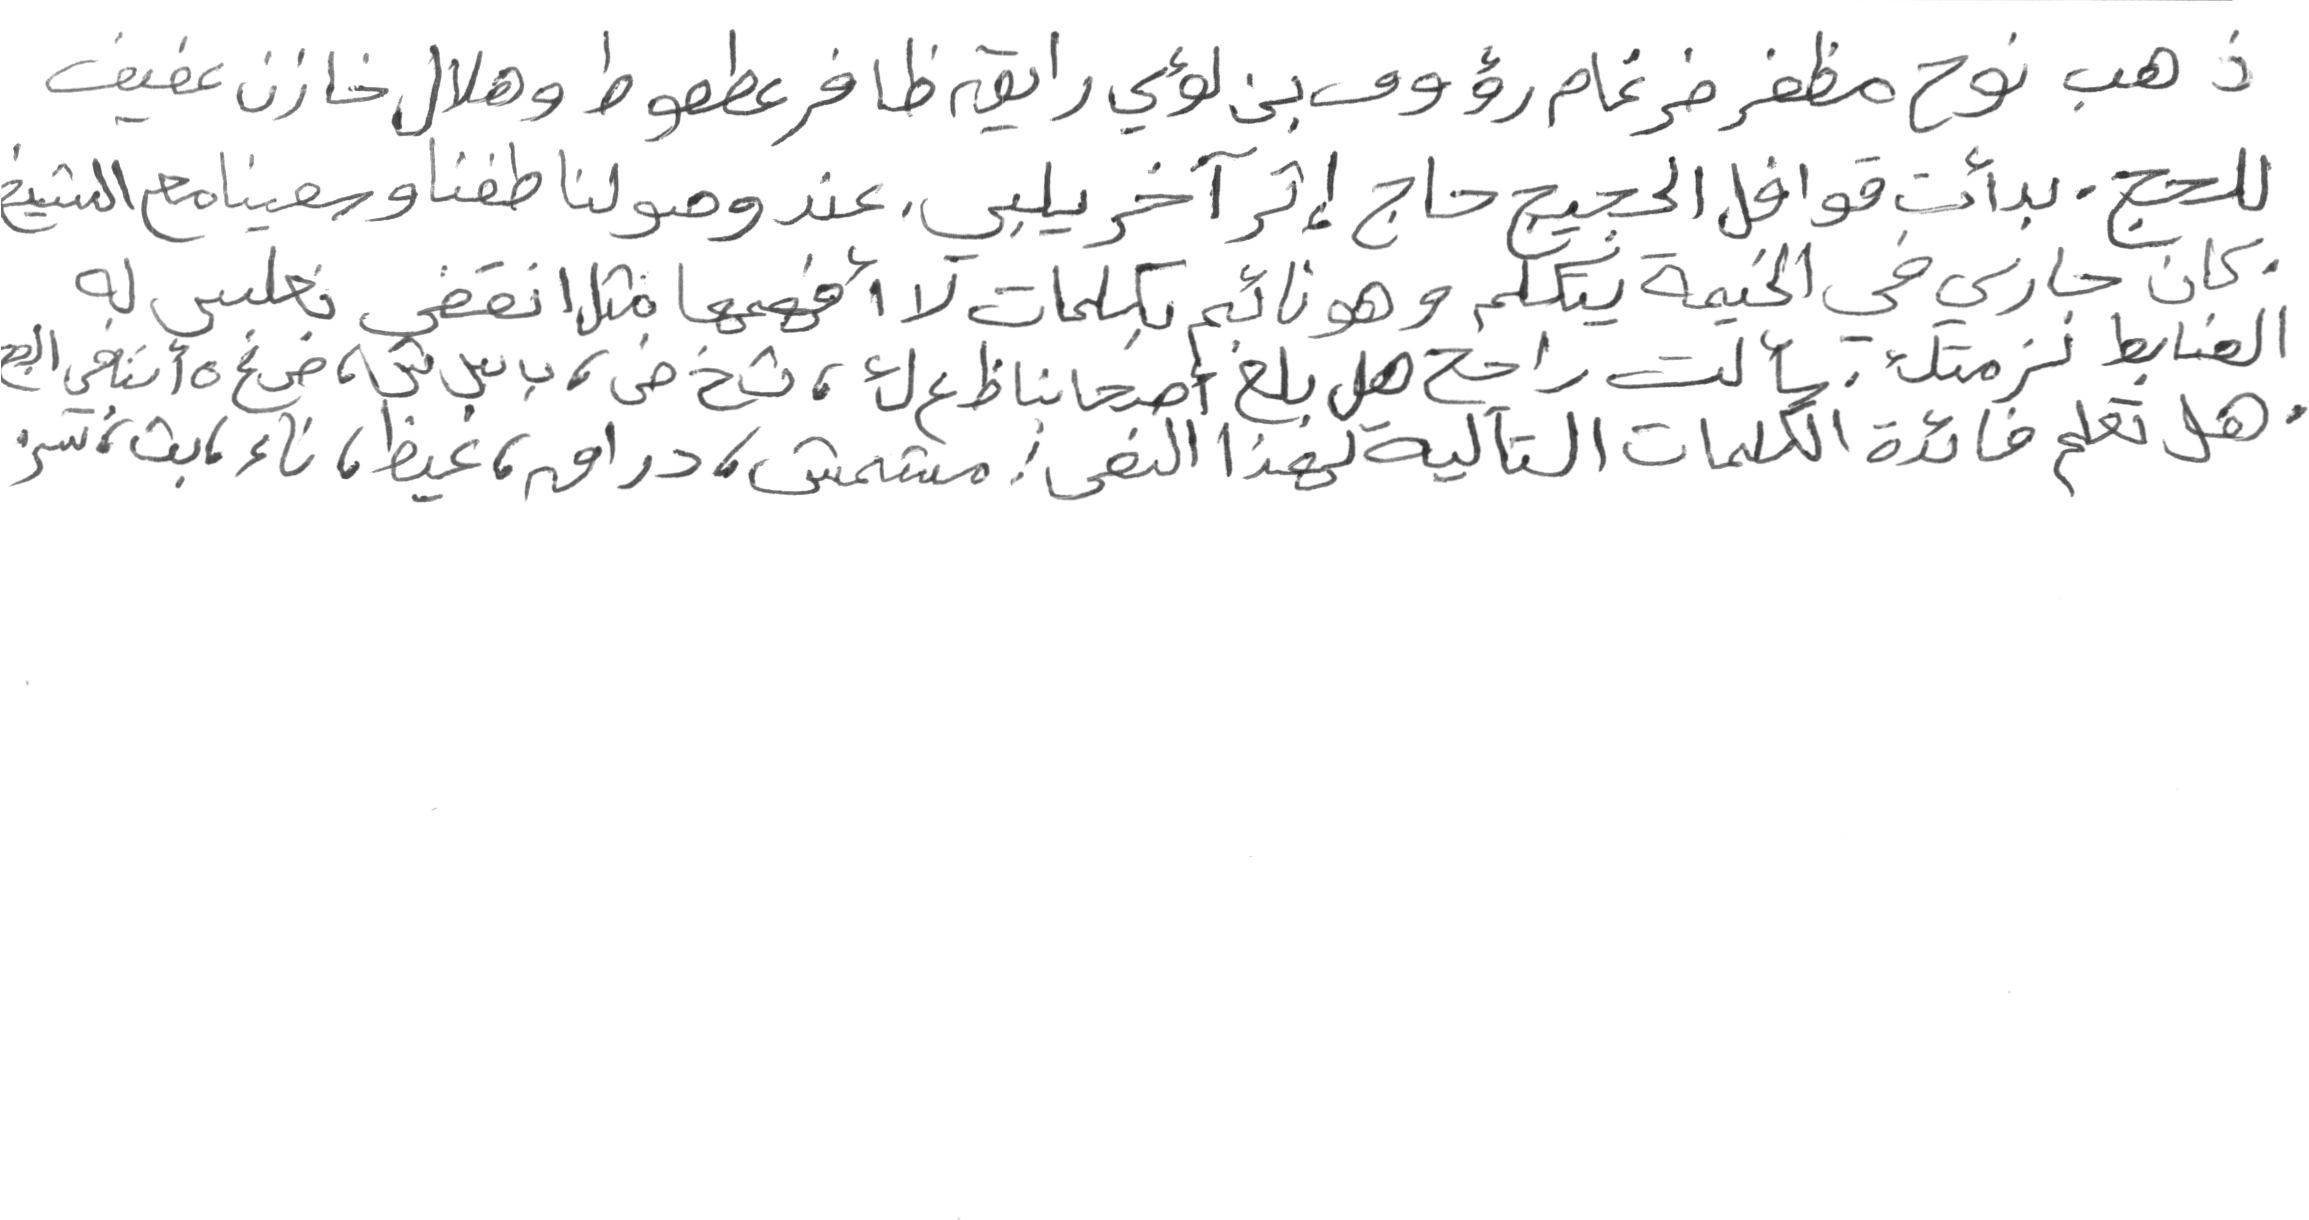 ذهب نوح مظفر ضرغام رؤوف بن لؤي رايق ظافر عطعوط وهلال خازن عفيف
للحج. بدأت قوافل الحجيج حاج إثر آخر يلبي. عند وصولنا طفنا وسعينا مع الشيخ
. كان حازي في الخيمة يتكلم وهو نائم بكلمات لا أفهمها مثل انقضي نعلس له
الضابط نزمتك. سألت راجح هل بلغ أصحابنا ظ ع لئ، ث خ ض، ب س ش، ض غ ه أثناء الحج
. هل تعلم فائدة الكلمات التالية لهذا النص: مشمش، دراق، غيظ، ناء، بث،